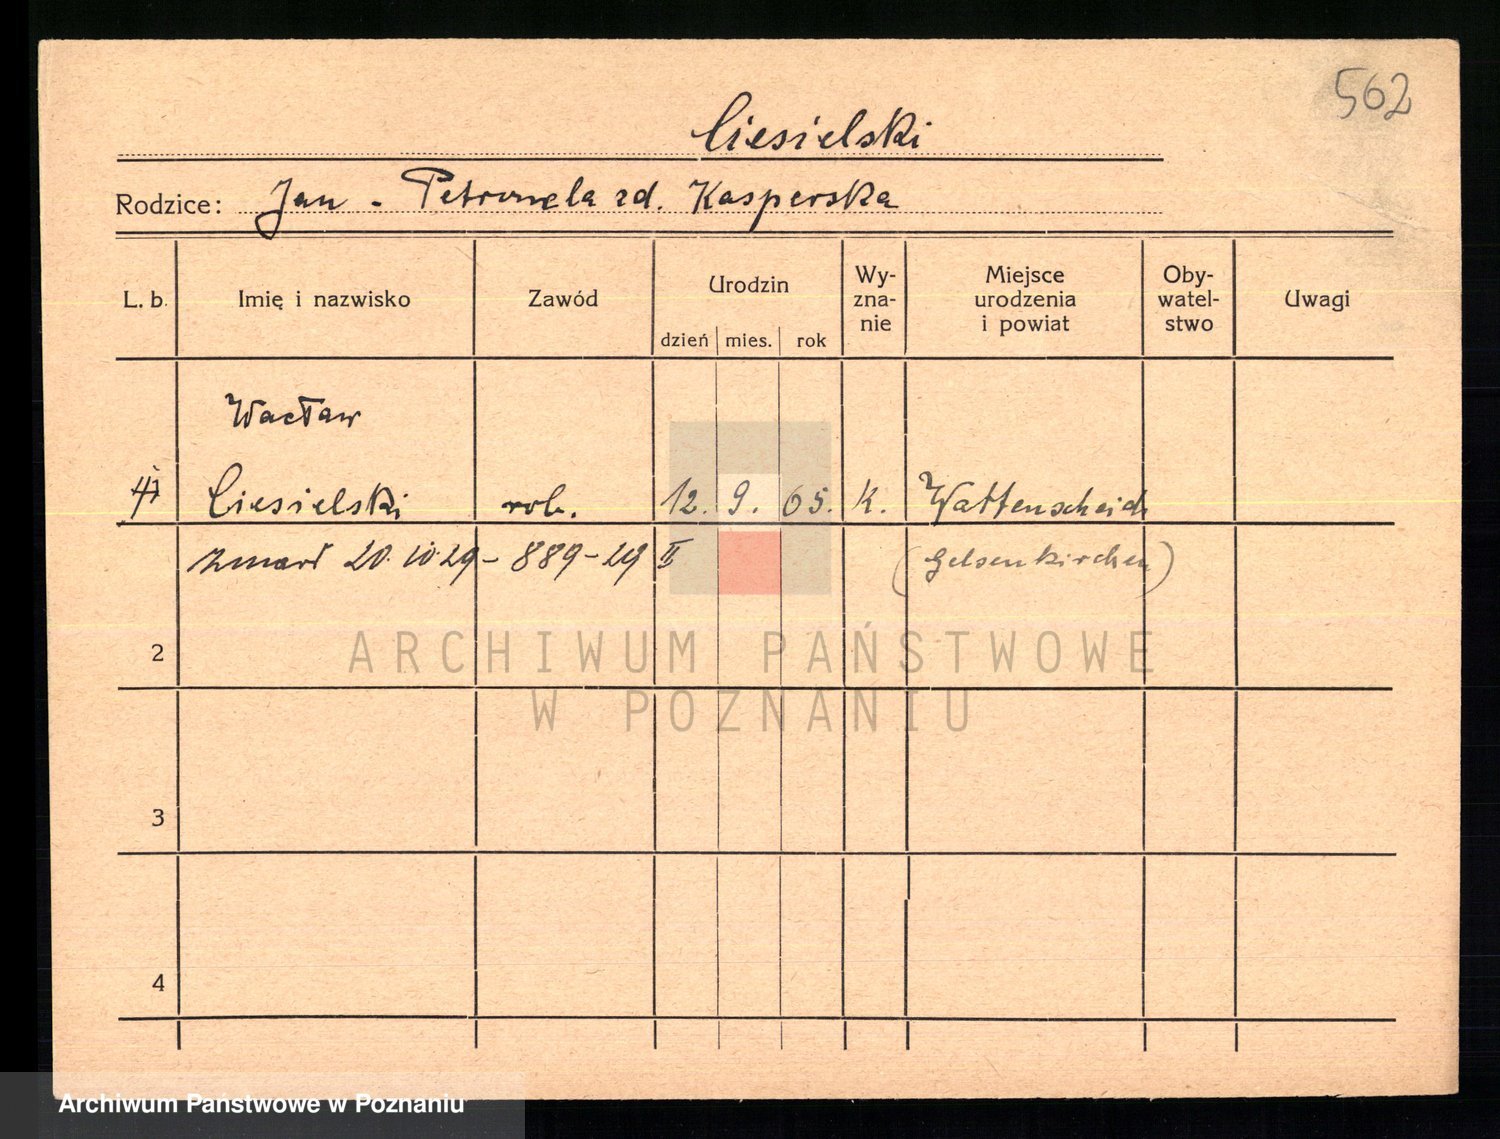 562
Ciesielski
Rodzice: Jan - Petronela zd. Kasperska
L. b. Imię i nazwisko Zawód Urodzin dzień mies. rok Wy-zna-nie Miejsce urodzenia i powiat Oby-watel-stwo Uwagi
Wacław
Ciesielski rob. 12. 9. 05. k. Wattenscheid
zmarł 20.10.29 - 889-29 II (Gelsenkirchen)
2
ARCHIWUM PAŃSTWOWE
W POZNANIU
3
4
Archiwum Państwowe w Poznaniu